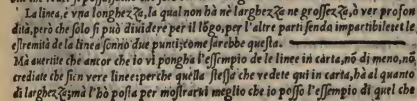 La linea, è vna longhezza, la qual non hà nè larghezza ne grossezza, ò ver profon
dità, però che solo si può diuidere per il lõgo, per l'altre parti senda impartibile: et le
estremità de la linea sonno due punti; come sarebbe questa.
Ma auertite che ancor che io vi pongha l'essempio de le linee in carta, nõ di meno, nõ
crediate che sien vere linee: perche quella stessa che vedete qui in carta, hà al quanto
di larghezza; ma l'hò posta per mostrarui meglio che io posso l'essempio di quel che